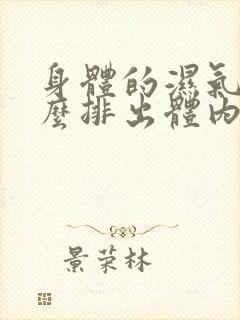 身體的濕氣
麼排出體內
景荣林